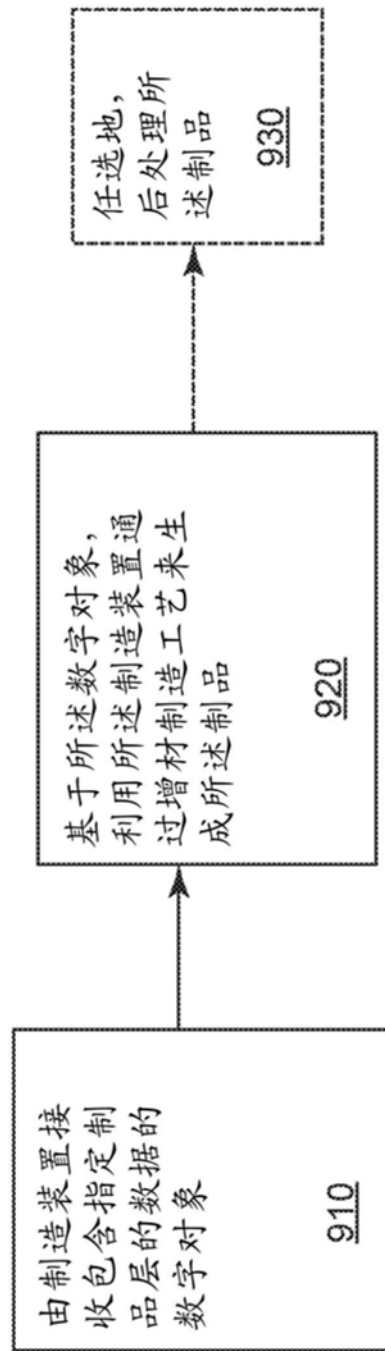 由制造装置接
收包含指定制
品层的数据的
数字对象
910
基于所述数字对象，
利用所述制造装置通
过增材制造工艺来生
成所述制品
920
任选地，
后处理所
述制品
930